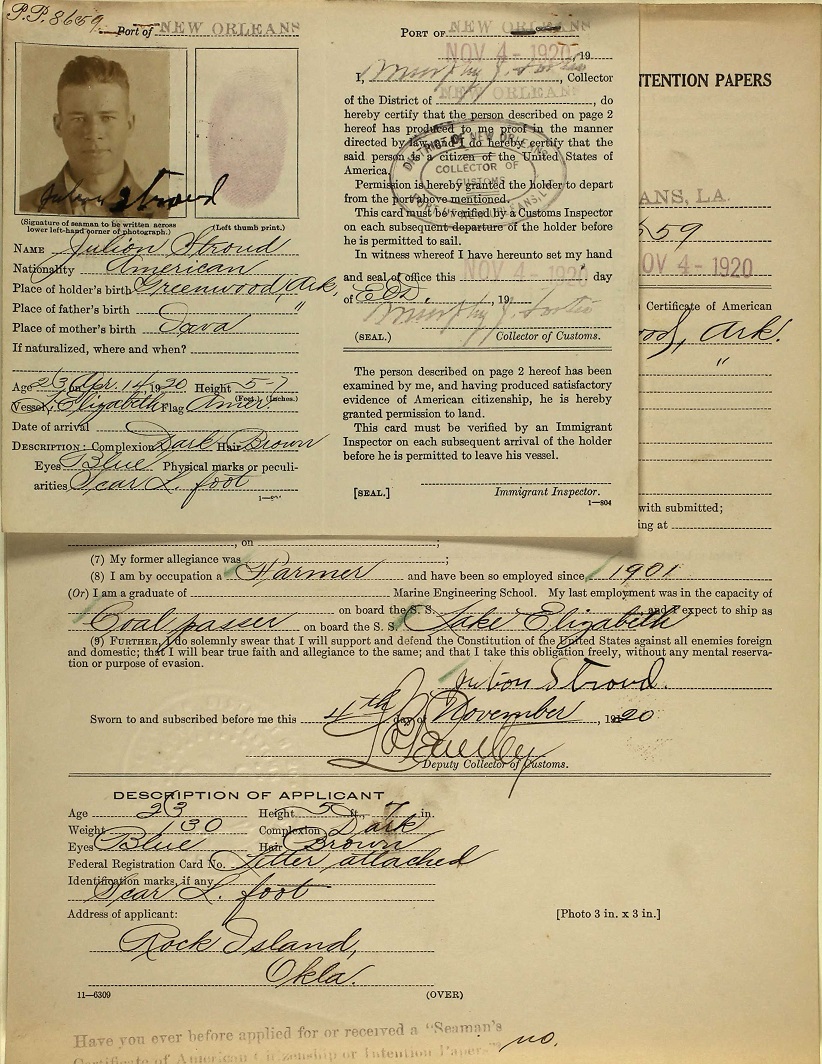 P.P. 8659
Port of NEW ORLEANS
Julion Stroud
(Signature of seaman to be written across
lower left-hand corner of photograph.)
(Left thumb print.)
NAME Julion Stroud
Nationality American
Place of holder's birth Greenwood, Ark,
Place of father's birth "
Place of mother's birth
If naturalized, where and when?
Age 23 on Apr. 14 1920 Height 5-7
(Feet.) (Inches.)
Vessel L. Elizabeth Flag Amer.
Date of arrival
DESCRIPTION: Complexion Dark Hair Brown
Eyes Blue Physical marks or peculi-
arities Scar L. foot
PORT OF NEW ORLEANS
NOV 4 - 1920, 19
I, Collector
of the District of NEW ORLEANS, do
hereby certify that the person described on page 2
hereof has produced to me proof in the manner
directed by law, and I do hereby certify that the
said person is a citizen of the United States of
America.
Permission is hereby granted the holder to depart
from the port above mentioned.
This card must be verified by a Customs Inspector
on each subsequent departure of the holder before
he is permitted to sail.
In witness whereof I have hereunto set my hand
and seal of office this NOV 4 - 1920 day
of , 19
(SEAL.) Collector of Customs.
DISTRICT OF NEW ORLEANS
COLLECTOR OF
CUSTOMS
The person described on page 2 hereof has been
examined by me, and having produced satisfactory
evidence of American citizenship, he is hereby
granted permission to land.
This card must be verified by an Immigrant
Inspector on each subsequent arrival of the holder
before he is permitted to leave his vessel.
[SEAL.] Immigrant Inspector.
1—804
NTENTION PAPERS
ANS, LA.
659
OV 4 - 1920
Certificate of American
ood, Ark.
"
with submitted;
ing at
, on ;
(7) My former allegiance was ;
(8) I am by occupation a Farmer and have been so employed since 1901
(Or) I am a graduate of Marine Engineering School. My last employment was in the capacity of
Coal passer on board the S. S. and I expect to ship as
on board the S. S. Lake Elizabeth
(9) FURTHER, I do solemnly swear that I will support and defend the Constitution of the United States against all enemies foreign
and domestic; that I will bear true faith and allegiance to the same; and that I take this obligation freely, without any mental reserva-
tion or purpose of evasion.
Julion Stroud.
Sworn to and subscribed before me this 4th day of November, 1920
Deputy Collector of Customs.
DESCRIPTION OF APPLICANT
Age 23 Height 5 ft. 7 in.
Weight 130 Complexion Dark
Eyes Blue Hair Brown
Federal Registration Card No. Letter attached
Identification marks, if any
Scar L. foot
Address of applicant: [Photo 3 in. x 3 in.]
Rock Island,
Okla.
11—6309 (OVER)
Have you ever before applied for or received a "Seaman's
Certificate of American Citizenship or Intention Papers" no.